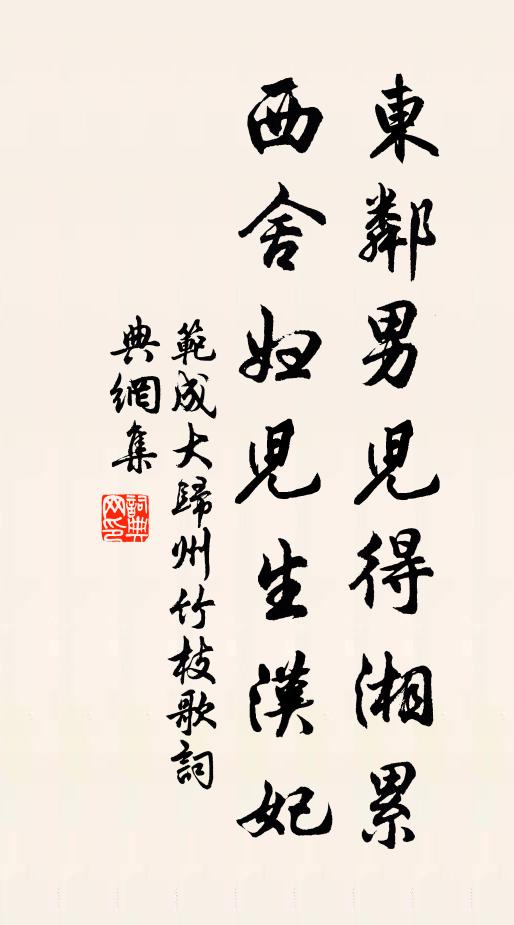 東鄰男兒得湘累
西舍妇兒生漢妃
範成大歸州竹枝歌詞
典網集
詞典网印